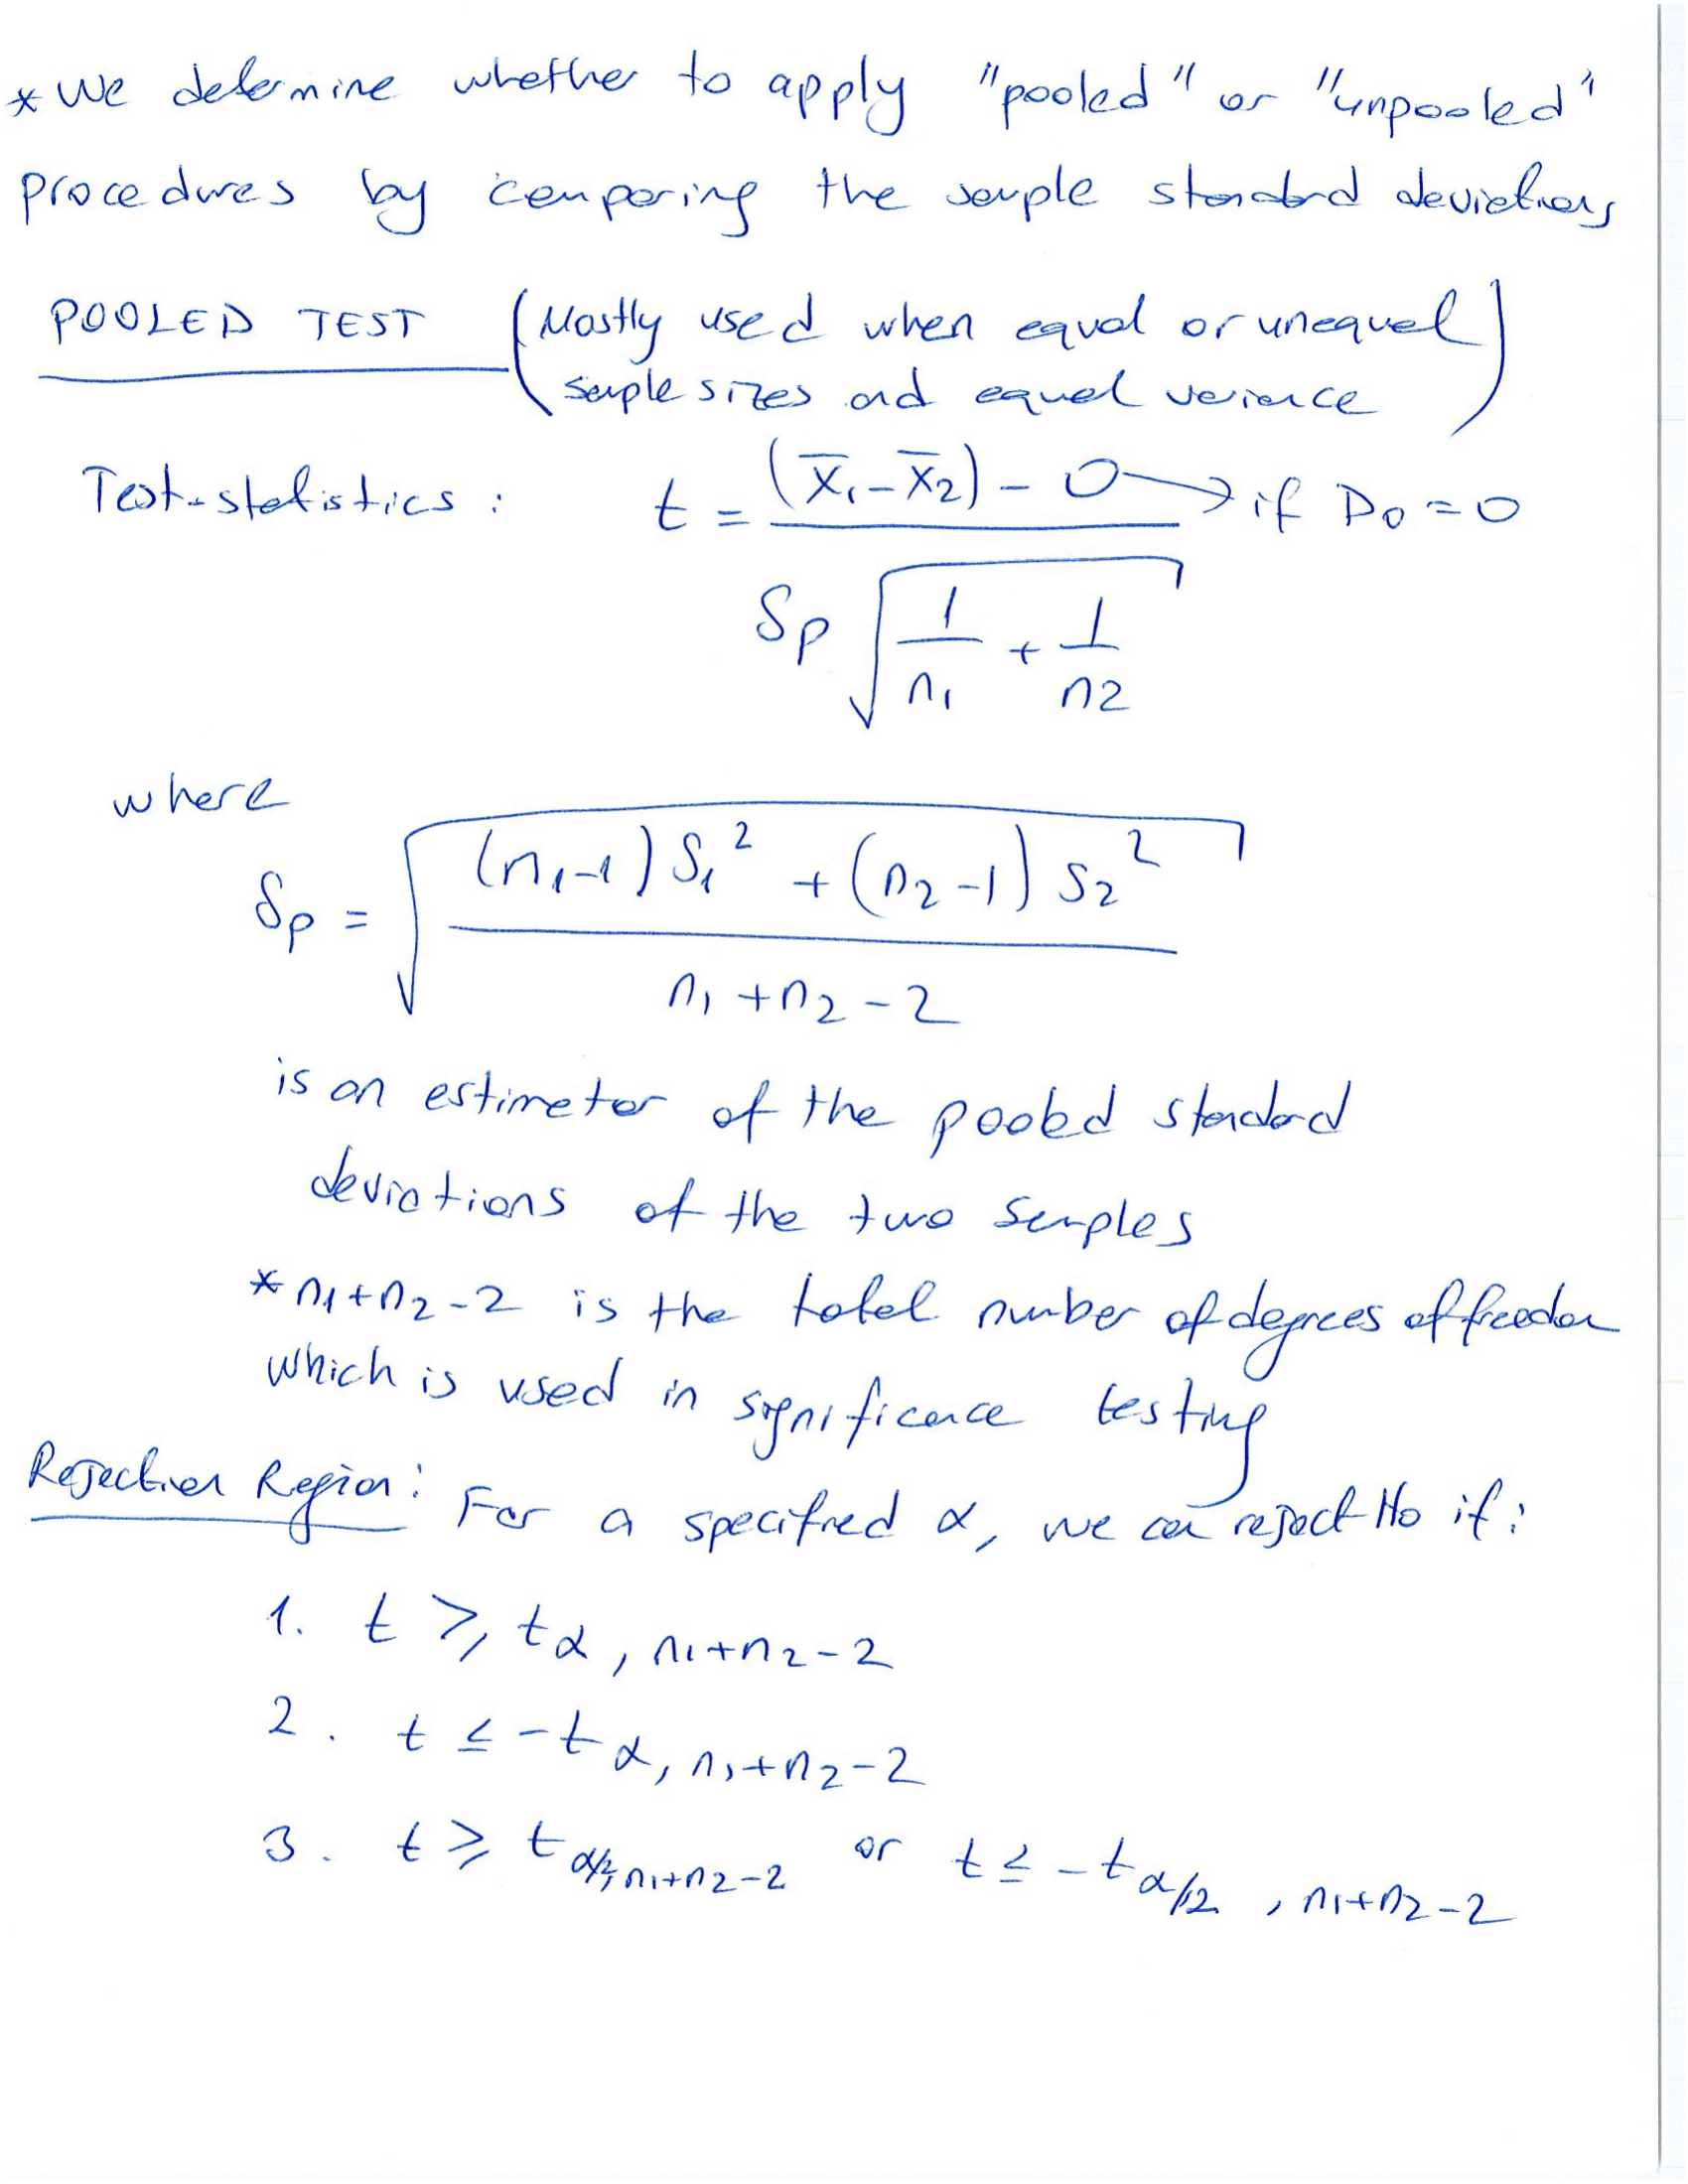 * We determine whether to apply "pooled" or "unpooled"
procedures by comparing the sample standard deviations
POOLED TEST (Mostly used when equal or unequal
sample sizes and equal variance)
Test-statistics : t = (x̄₁ - x̄₂) - 0 → if D₀ = 0
Sp √ 1/n₁ + 1/n2
where
Sp = √ (n₁-1) S₁² + (n₂-1) S₂²
n₁ + n₂ - 2
is an estimator of the pooled standard
deviations of the two samples
* n₁+n₂-2 is the total number of degrees of freedom
which is used in significance testing
Rejection Region: For a specified α, we can reject Ho if:
1. t ≥ tα, n₁+n₂-2
2. t ≤ -tα, n₁+n₂-2
3. t ≥ tα/2, n₁+n₂-2 or t ≤ -tα/2, n₁+n₂-2